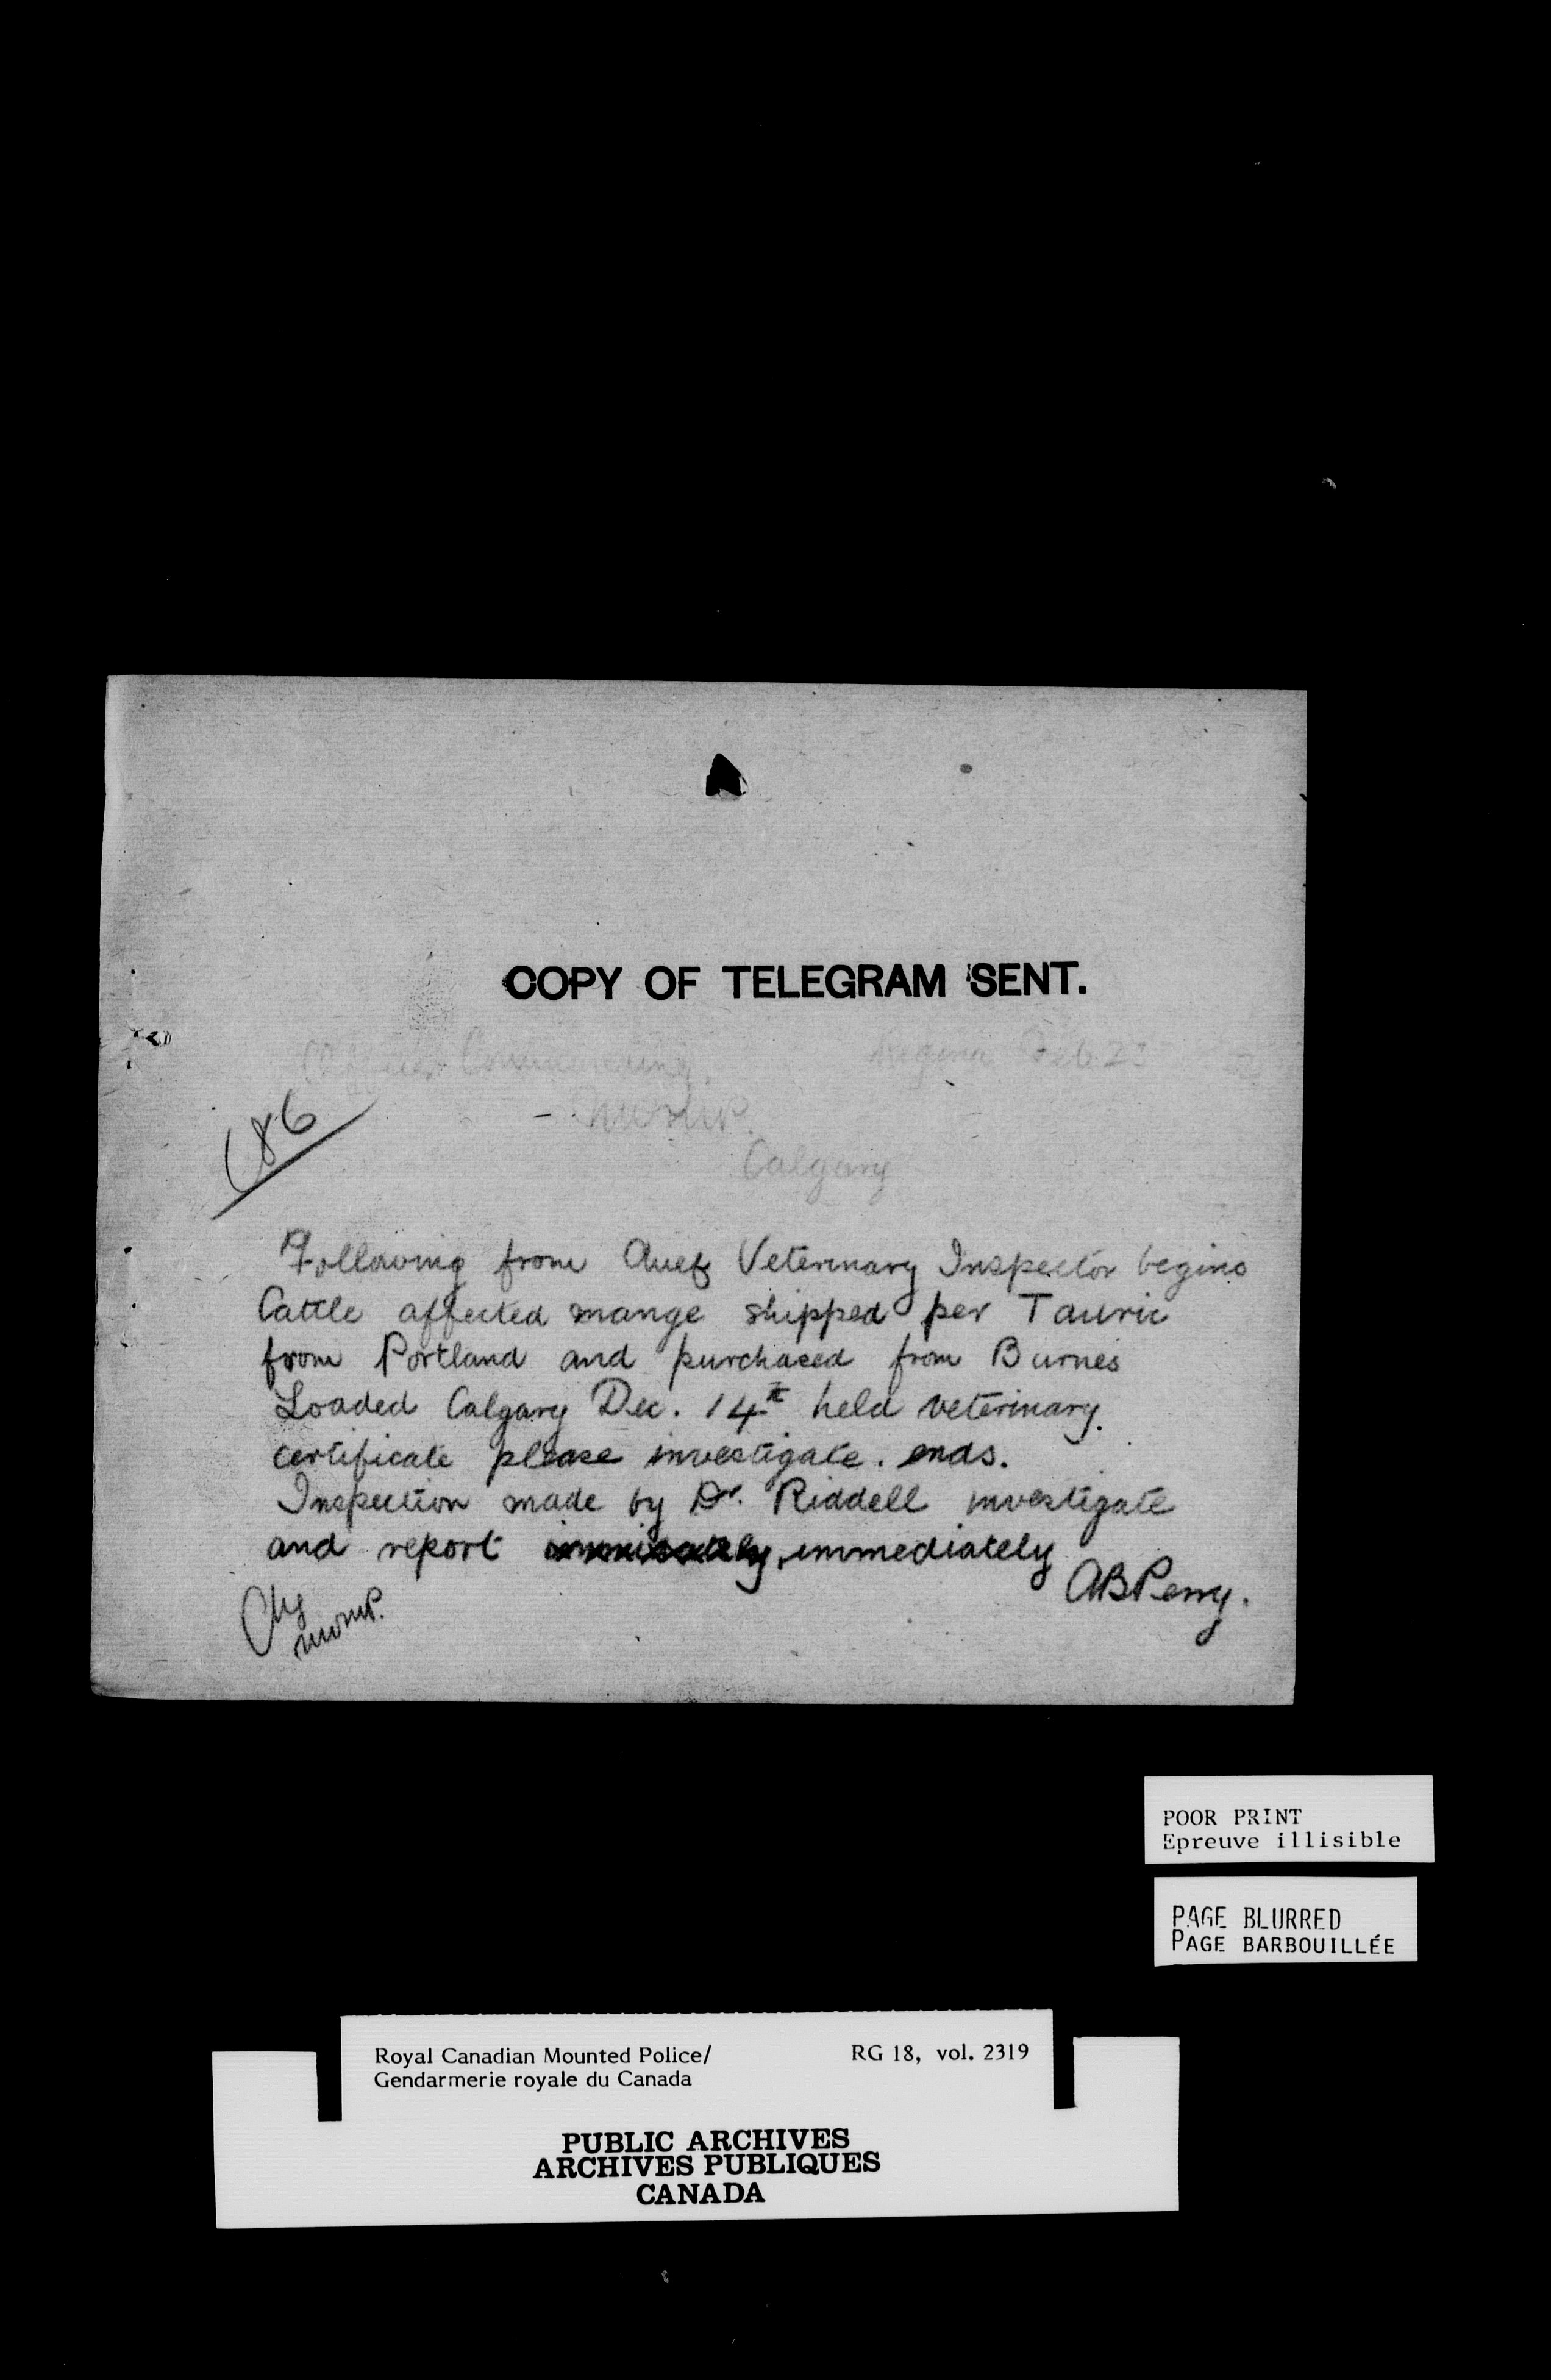 COPY OF TELEGRAM SENT.
Officer Commanding, Regina Feb. 23
NWMP.
Calgary
186
Following from Chief Veterinary Inspector begins
Cattle affected mange shipped per Tauric
from Portland and purchased from Burnes
Loaded Calgary Dec. 14th held veterinary
certificate please investigate. ends.
Inspection made by Dr. Riddell investigate
and report immediately
ABPerry.
NWMP.
POOR PRINT
Epreuve illisible
PAGE BLURRED
PAGE BARBOUILLÉE
Royal Canadian Mounted Police/ RG 18, vol. 2319
Gendarmerie royale du Canada
PUBLIC ARCHIVES
ARCHIVES PUBLIQUES
CANADA